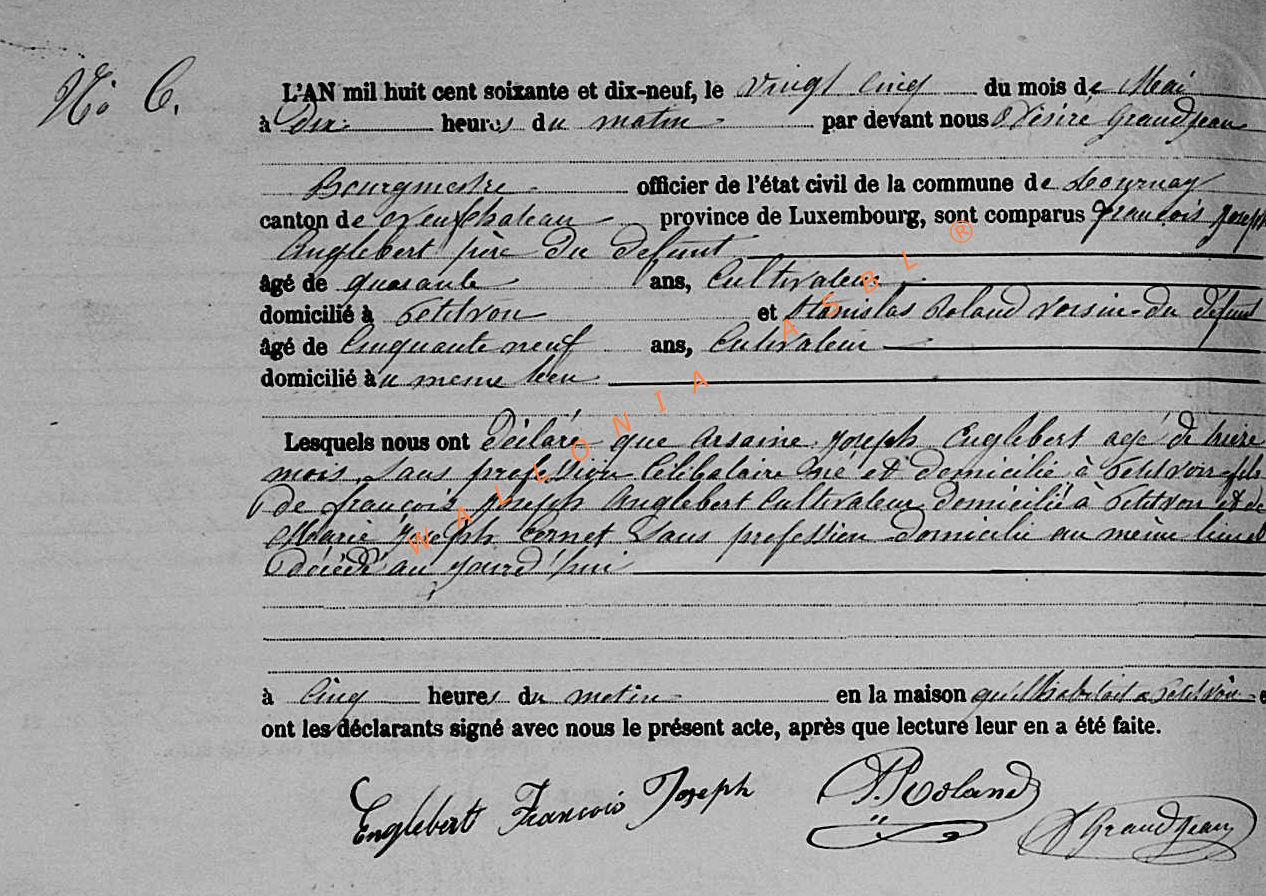 N° 6.
L'AN mil huit cent soixante et dix-neuf, le vingt cinq du mois de Mai
à Dix heures du matin par devant nous Désiré Grandjean
Bourgmestre officier de l'état civil de la commune de Tournay
canton de Neufchateau province de Luxembourg, sont comparus François Joseph
Englebert père du défunt
âgé de quarante ans, Cultivateur
domicilié à Petitvoir et Stanislas Roland voisin du défunt
âgé de Cinquante neuf ans, Cultivateur
domicilié au meme lieu
Lesquels nous ont déclaré que Arsaine Joseph Englebert agé de
mois Sans profession Célibataire né et domicilié à Petitvoir fils
de françois Joseph Englebert Cultivateur domicilié à Petitvoir et de
Marie Joseph Cornet Sans profession domicilié au même lieu est
décédé au jourd'hui
à Cinq heures du matin en la maison qu'il habitait a Petitvoir e
ont les déclarants signé avec nous le présent acte, après que lecture leur en a été faite.
Englebert François Joseph Roland
Grandjean
WALLONIA ASBL ®